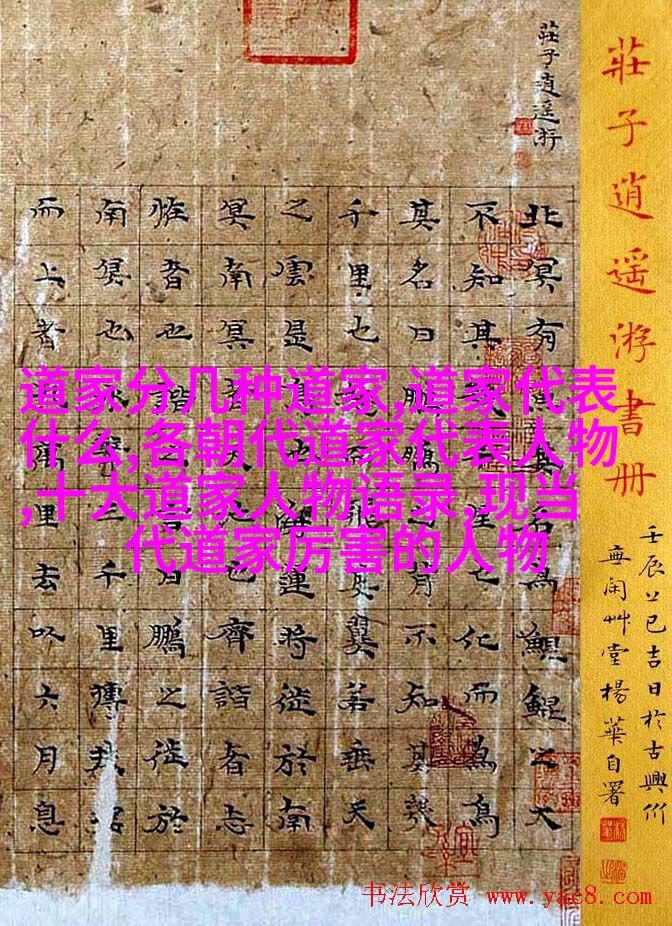 莊子逍遥游
莊子逍遥游書册
壬辰上巳吉日於古興州
無闲艸堂楊華自署
北冥有魚其名為鯤鯤之大
不知其千里也化而為鳥
其名曰鵬鵬之背不知其幾
千里也怒而飛其翼若垂天
之雲是鳥也海運將徙於南
冥南冥者天池也齊諧者志
恠者也諧之言曰鵬之徙於
南冥也水擊三千里摶扶搖
而上者九萬里去以六月息
道家分几种道家,道家代表
什么,各朝代道家代表人物
,十大道家人物语录,现当
代道家厉害的人物
书法欣赏 www.yac8.com